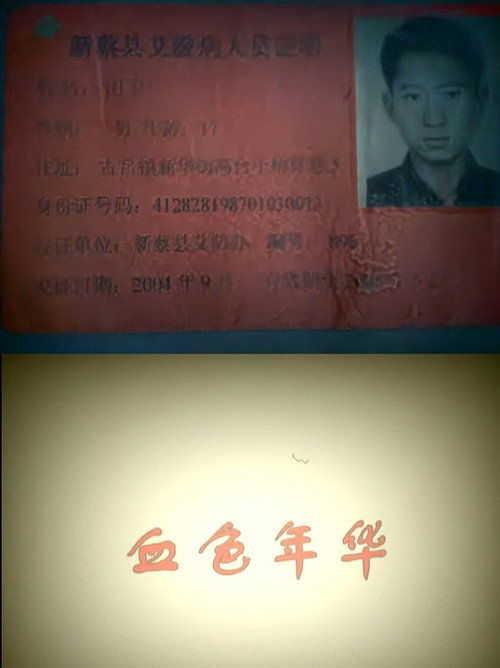 新蔡县艾滋病人员证明
姓名：
性别：男 年龄：17
住址：古吕镇新华街高台子
身份证号码：412828198701030013
发证单位：新蔡县艾防办 编号：
发证日期：2004年9月 有效期至
血色年华